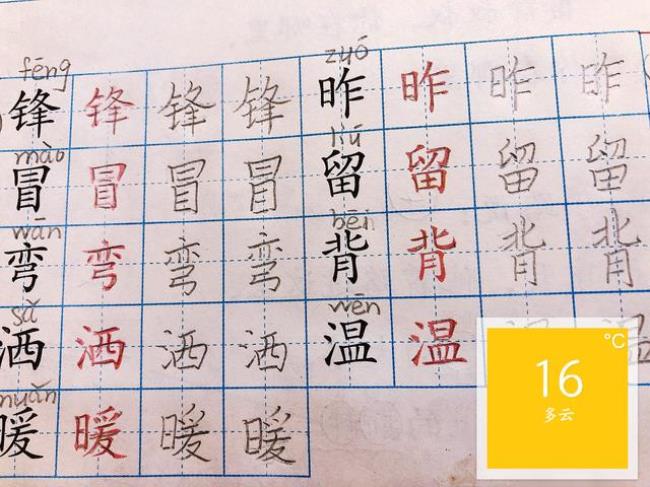 fēng zuó
锋 锋 锋 锋 昨 昨 昨 昨
mào liú
冒 冒 冒 冒 留 留 留 留
wān bèi
弯 弯 弯 弯 背 背 背 背
sǎ wēn
洒 洒 洒 洒 温 温
nuǎn
暖 暖 暖 暖
℃
16
多云